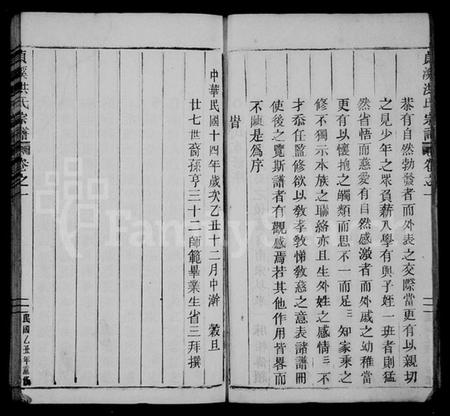 貞溪洪氏宗譜 卷之一
恭有自然勃發者而外表之交際當更有以親切
之見少年之眾負薪入學有與子姪一班者則猛
然省悟而慈愛有自然感激者而外戚之幼稚當
更有以懷抱之觸類而思不一而足三知家乘之
修不獨示本族之聯絡亦且生外姓之感情三不
才忝任監修欲以敎孝敎悌敎慈之意表諸譜冊
使後之覽斯譜者有觀感焉若其他作用皆畧而
不陳是爲序
旹
中華民國十四年歲次乙丑十二月中澣 穀旦
廿七世裔孫亨三十二師範畢業生省三拜撰
貞溪洪氏宗譜 卷之一
民國乙丑年重修